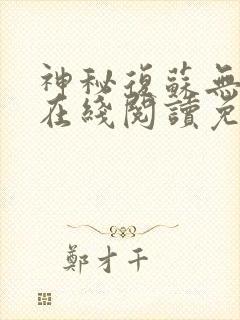 神秘復蘇無
在綫閱讀免
鄭才千